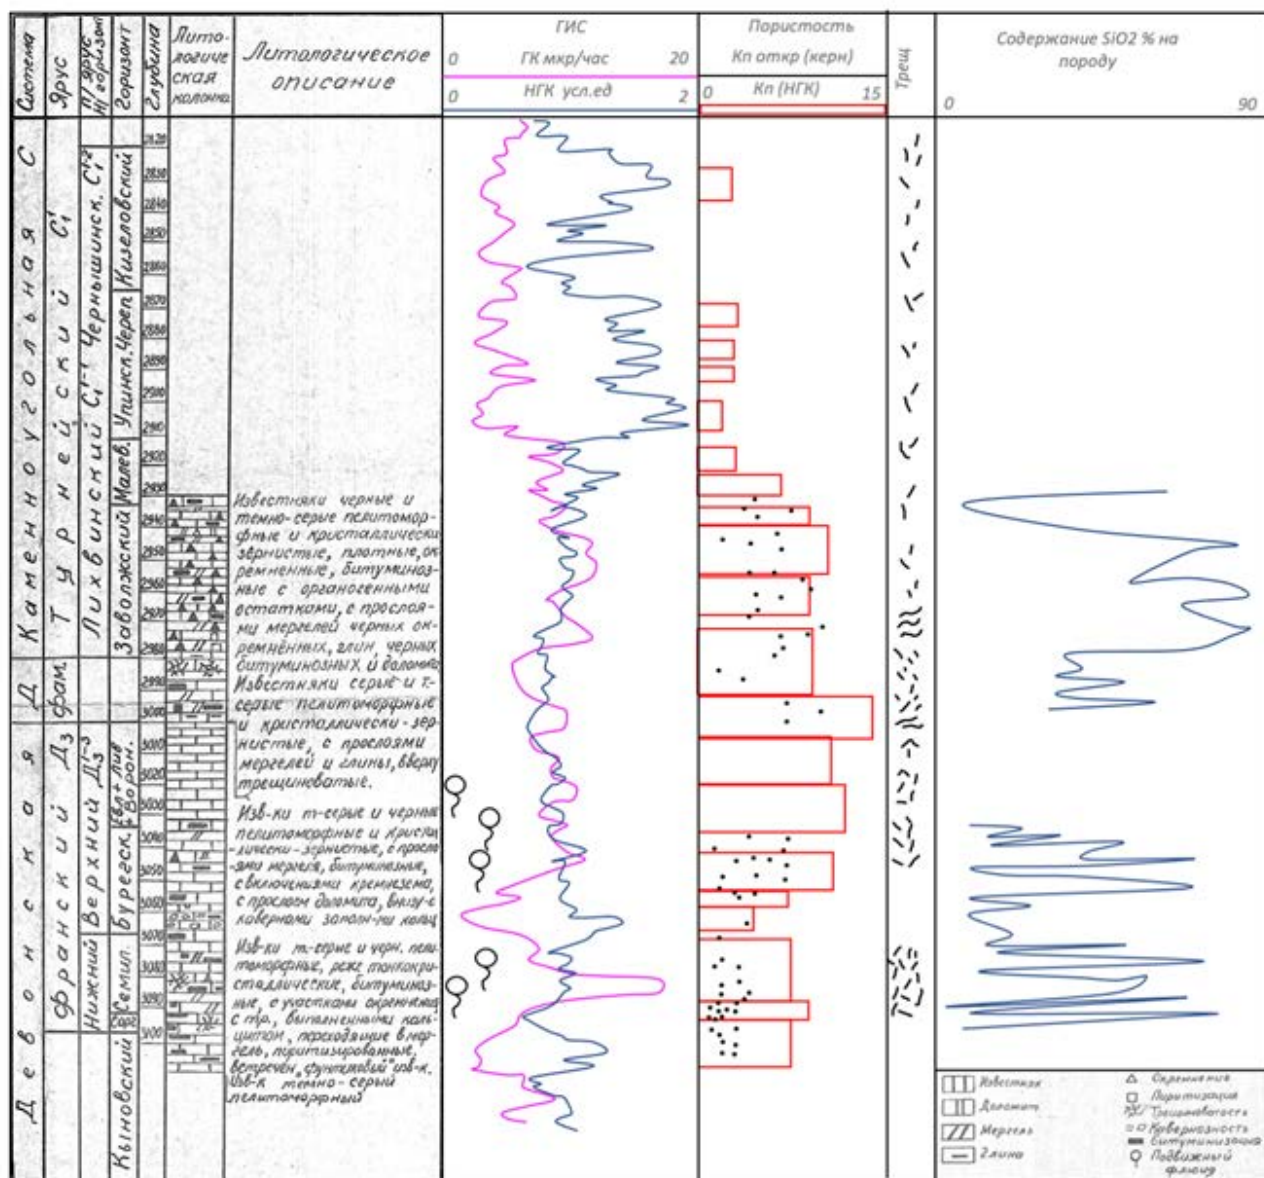 Система
Ярус
П/ярус Н/горизонт
Горизонт
Глубина
Литологическая колонка
Литологическое
описание
ГИС
0 ГК мкр/час 20
0 НГК усл.ед 2
Пористость
Кп откр (керн)
Кп (НГК)
0 15
Трещ
Содержание SiO2 % на
породу
0 90
Каменноугольная С
Девонская Д
Турнейский С₁¹
фам.
франский Д₃
Лихвинский С₁¹⁻¹ Чернышинск. С₁¹⁻²
Верхний Д₃¹⁻³
Нижний
Кизеловский
Череп
Упинск.
Малев.
Заволжский
Евл+Лив
+Ворон.
Бурегск.
Семил.
Кыновский
2820
2830
2840
2850
2860
2870
2880
2890
2900
2910
2920
2930
2940
2950
2960
2970
2980
2990
3000
3010
3020
3030
3040
3050
3060
3070
3080
3090
3100
Известняки черные и
темно-серые пелитомор-
фные и кристаллически
зернистые, плотные, ок-
ремненные, битуминоз-
ные с органогенными
остатками, с прослоя-
ми мергелей черных ок-
ремнённых, глин черных
битуминозных и доломит
Известняки серые и т-
серые пелитоморфные
и кристаллически-зер-
нистые, с прослоями
мергелей и глины, вверху
трещиноватые.
Изв-ки т-серые и черные
пелитоморфные и кристал
лически-зернистые, с просло-
ями мергеля, битуминозные,
с включениями кремнезема,
с прослоем доломита, внизу с
кавернами заполн-ми кальц
Изв-ки т-серые и черн. пели-
томорфные, реже тонкокри-
сталлические, битуминоз-
ные, с участками окремнения
с тр., выполненными каль-
цитом, переходящие в мер-
гель, пиритизированные,
встречен, фунтиковый изв-к.
Изв-к темно-серый
пелитоморфный
Известняк
Доломит
Мергель
Глина
Окремнение
Пиритизация
Трещиноватость
Кавернозность
Битуминизация
Подвижный
флюид